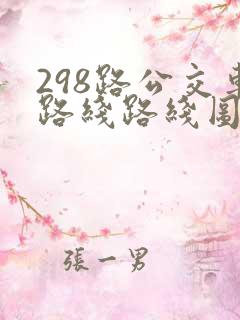 298路公交车
路线路线图
張一男